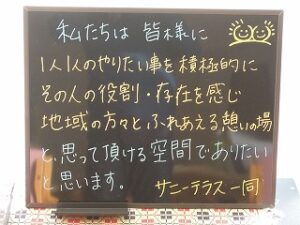 私たちは 皆様に
1人1人のやりたい事を積極的に
その人の役割・存在を感じ
地域の方々とふれあえる憩いの場
と、思って頂ける空間でありたい
と思います。 サニーテラス一同